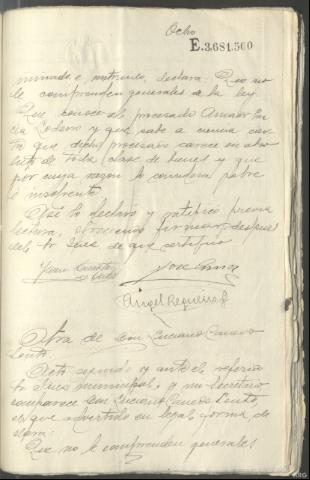 Ocho
E.3.681.560
minado e instruido, declara: Que no
le comprenden generales de la ley
Que conoce al procesado Amador
y que sabe a ciencia cier
ta que dicho procesado carece en abso
luto de toda clase de bienes y que
por cuya razón lo considera pobre
e insolvente.
Así lo declaró y ratificó previa
lectura, firmar, despues
del Sr Juez, de que certifico
Juan José
Angel Regueira
Otra de Don Luciano
Acto seguido y ante el referi
do Juez municipal, y mi Secretario
comparece Don Luciano
el que advertido en legal forma, de
clara:
Que no le comprenden generales